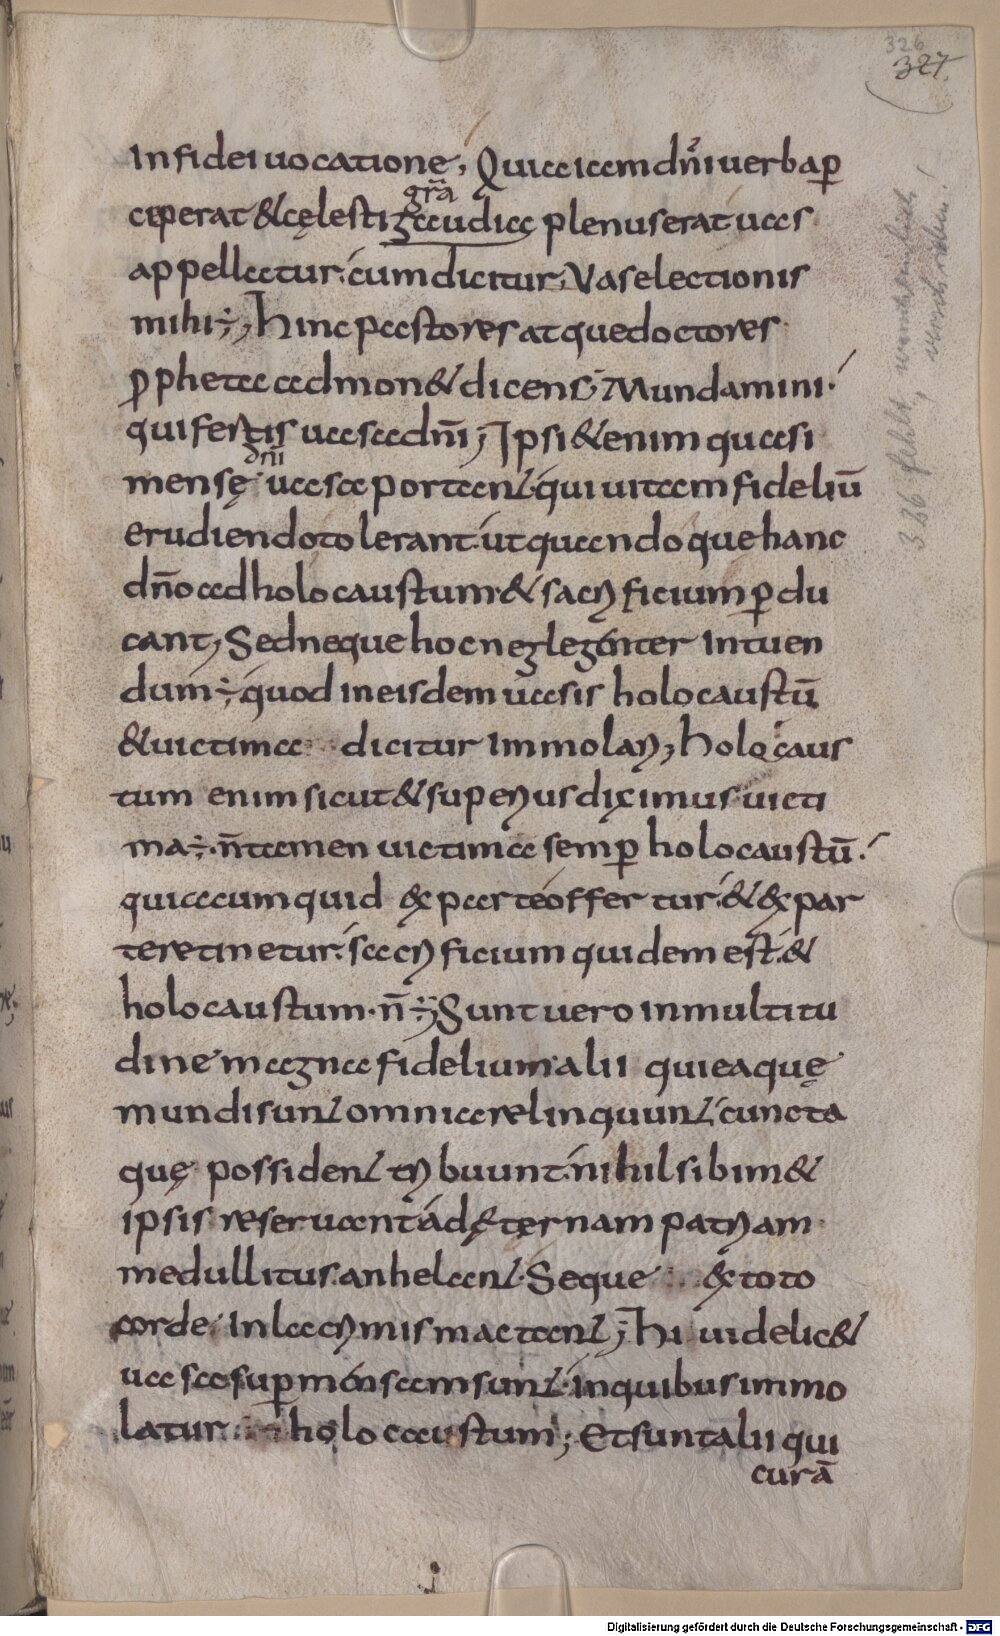 326
327
In fidei uocatione; Quia iam dn̄i uerba ꝑ
ceperat & cęlesti gaudia plenus erat uas
grā
appellatur. cum dicitur; Vas electionis
mihi ÷; Hinc pastores atque doctores
ꝓpheta admon& dicens; Mundamini.
qui fertis uasa dn̄i; Ipsi & enim quasi
mensę uasa portant. qui uitam fideliū
dn̄i
erudiendo tolerant. ut quandoque hanc
dn̄o ad holocaustum & sacrificium ꝑdu
cant; Sed neque hoc neglegenter Intuen
dum ÷; quod in eisdem uasis holocaustū
& uictima dicitur Immolari; Holocaus
tum enim sicut & superius diximus uicti
ma ÷. n̄ tamen uictima semꝑ holocaustū.
quia cum quid ex parte offertur. & ex par
te retinetur. sacrificium quidem est. &
holocaustum. n̄ ÷; Sunt uero in multitu
dine magna fidelium alii qui ea quę
mundi sunt omnia relinquunt. cuncta
quę possident tribuunt. nihil sibim&
ipsis reseruant. ad ęternam patriam
medullitus anhelant. Seque ex toto
corde In lacrimis mactant; Hi uidelic&
uasa suꝑ mensam sunt. in quibus immo
latur holocaustum; Et sunt alii qui
curā
Digitalisierung gefördert durch die Deutsche Forschungsgemeinschaft - DFG